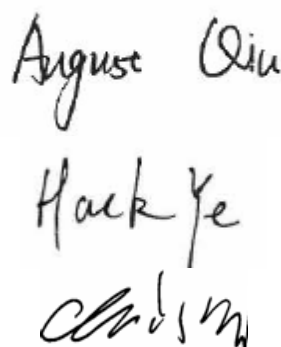 August Qiu
Hack Ye
Chris